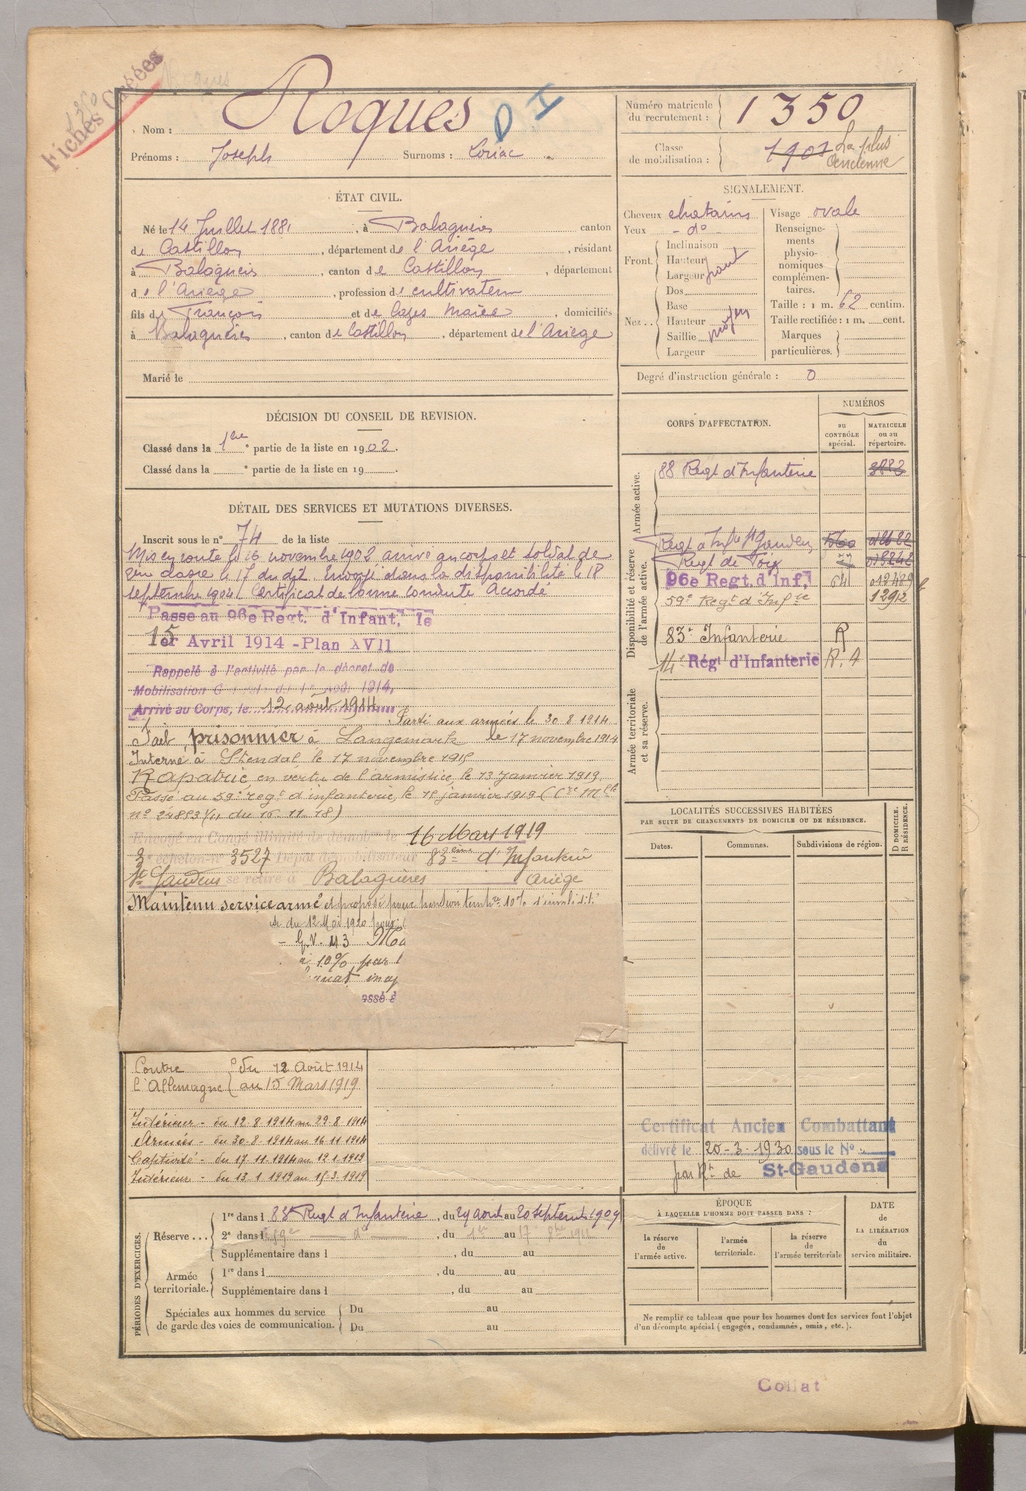 Fiches Créées
Nom : Roques
Prénoms : Joseph Surnoms : Loriac
Numéro matricule du recrutement : 1350
Classe de mobilisation : 1901 La plus ancienne
ÉTAT CIVIL.
Né le 14 Juillet 1881, à Balaguères canton
de Castillon, département de l'Ariège, résidant
à Balaguères, canton de Castillon, département
de l'Ariège, profession de cultivateur
fils de François et de Cazes Marie, domiciliés
à Balaguères, canton de Castillon, département de l'Ariège
Marié le
SIGNALEMENT.
Cheveux chatains
Yeux - do -
Front. Inclinaison
Hauteur
Largeur
Nez.. Dos
Base
Hauteur moyen
Saillie
Largeur
Visage ovale
Renseignements physionomiques complémentaires.
Taille : 1 m. 62 centim.
Taille rectifiée : 1 m. cent.
Marques particulières.
Degré d'instruction générale : 0
DÉCISION DU CONSEIL DE REVISION.
Classé dans la 1ère partie de la liste en 1902.
Classé dans la e partie de la liste en 19
CORPS D'AFFECTATION.
NUMÉROS
au CONTRÔLE spécial.
MATRICULE ou au répertoire.
Armée active.
88 Regt d'Infanterie
Disponibilité et réserve de l'armée active.
Regt d'Infie St Gaudens
Regt de Foix
96e Regt. d'Inf, 64
59e Regt d'Infie 1292
83e Infanterie R
14e Régt d'Infanterie R. A
Armée territoriale et sa réserve.
DÉTAIL DES SERVICES ET MUTATIONS DIVERSES.
Inscrit sous le n° 74 de la liste
Mis en route le 16 novembre 1902 arrivé au corps et soldat de
2me classe le 17 du dit. Envoyé dans la disponibilité le 18
septembre 1904. Certificat de bonne conduite Accordé
Passé au 96e Regt. d'Infant, le
1er Avril 1914 - Plan XVII
Rappelé à l'activité par le décret de
Mobilisation Générale du 1er Août 1914,
Arrivé au Corps, le 12 août 1914. Parti aux armées le 30.8.1914
Fait prisonnier à Langemark le 17 novembre 1914
Interné à Stendal, le 17 novembre 1915
Rapatrié en vertu de l'armistice, le 13 Janvier 1919,
Passé au 59e regt d'infanterie, le 15 janvier 1919 (Cre Mlle
n° 24883 /11 du 15.11.18)
Envoyé en Congé illimité de démobon le 16 Mars 1919
3e échelon n° 3527 Dépôt démobilisateur 83ème d'Infanterie
St Gaudens se retire à Balaguères Ariège
Maintenu service armé et proposé pour pension tempre 10% d'invalidité
du 12 Mai 1920
G.V. 43
à 10%
assé à
Contre l'Allemagne du 12 Août 1914
au 15 Mars 1919
Intérieur - du 12.8.1914 au 29.8.1914
Armées - du 30.8.1914 au 16.11.1914
Captivité - du 17.11.1914 au 12.1.1919
Intérieur - du 13.1.1919 au 15.3.1919
LOCALITÉS SUCCESSIVES HABITÉES
PAR SUITE DE CHANGEMENTS DE DOMICILE OU DE RÉSIDENCE.
Dates.
Communes.
Subdivisions de région.
D DOMICILE.
R RÉSIDENCE.
Certificat Ancien Combattant
délivré le 20-3-1930 sous le No
par Rt de St-Gaudens
PÉRIODES D'EXERCICES.
Réserve... 1re dans l 88e Regt d'Infanterie, du 29 août au 20 septembre 1909
2e dans l
Supplémentaire dans l , du au
Armée territoriale. 1re dans l , du au
Supplémentaire dans l , du au
Spéciales aux hommes du service de garde des voies de communication. Du au
Du au
ÉPOQUE
À LAQUELLE L'HOMME DOIT PASSER DANS :
la réserve de l'armée active.
l'armée territoriale.
la réserve de l'armée territoriale
DATE
de
LA LIBÉRATION
du
service militaire.
Ne remplir ce tableau que pour les hommes dont les services font l'objet
d'un décompte spécial (engagés, condamnés, omis, etc.).
Collat